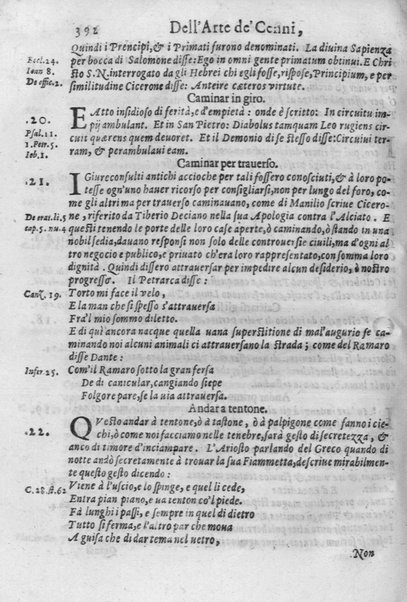 392 Dell'Arte de'Cenni,
Quindi i Prencipi, & i Primati furono denominati. La diuina Sapienza
Eccl.24. per bocca di Salomone disse: Ego in omni gente primatum obtinui. E Chri
Ioan 8. sto S.N. interrogato da gli Hebrei chi egli fosse, rispose, Principium, e per
De offic.2. similitudine Cicerone disse: Anteire cæteros virtute.
Caminar in giro.
.20. EAtto insidioso di ferità, e d'empietà: onde è scritto: In circuitu im-
Psal.11. pij ambulant. Et in San Pietro: Diabolus tamquam Leo rugiens cir-
1.Petr.5. cuit quærens quem deuoret. Et il Demonio di se stesso disse: Circuiui ter-
Iob.1. ram, & perambulaui eam.
Caminar per trauerso.
.21. IGiureconsulti antichi accioche per tali fossero conosciuti, & à loro po-
tesse ogn'uno hauer ricorso per consigliarsi, non per lungo del foro, come
gli altri ma per trauerso caminauano, come di Manilio scriue Cicero-
De orat.li.5 ne, riferito da Tiberio Deciano nella sua Apologia contra l'Alciato. E
cap.5. nu.4 questi tenendo le porte delle loro case aperte, ò caminando, ò stando in una
nobil sedia, dauano responsi non solo delle controuersie ciuili, ma d'ogni al
tro negocio e publico, e priuato ch'era loro rappresentato, con somma loro
dignità. Quindi dissero attrauersar per impedire alcun desiderio, ò nostro
progresso. Il Petrarca disse:
Canz. 19. Torto mi face il velo,
E la man che si spesso s'attrauersa
Fra'l mio sommo diletto.
E di quì ancora nacque quella uana superstitione di mal'augurio se ca-
minando noi alcuni animali ci attrauersano la strada; come del Ramarro
disse Dante:
Infer 25. Com'il Ramaro sotto la gran fersa
De dì canicular, cangiando siepe
Folgore pare, se la uia attrauersa.
Andar a tentone.
.22. QVesto andar à tentone, ò à tastone, ò à palpigone come fanno i cie-
chi, ò come noi facciamo nelle tenebre, sarà gesto di secretezza, &
anco di timore d'inciampare. L'Ariosto parlando del Greco quando di
notte andò secretamente à trouar la sua Fiammetta, descriue mirabilmen-
te questo gesto dicendo:
C.28.st.62 Viene à l'uscio, e lo spinge, e quel li cede,
Entra pian piano, e ua tenton co'l piede.
Fà lunghi i passi, e sempre in quel di dietro
Tutto si ferma, e l'altro par che moua
A guisa che di dar tema nel uetro,
Non